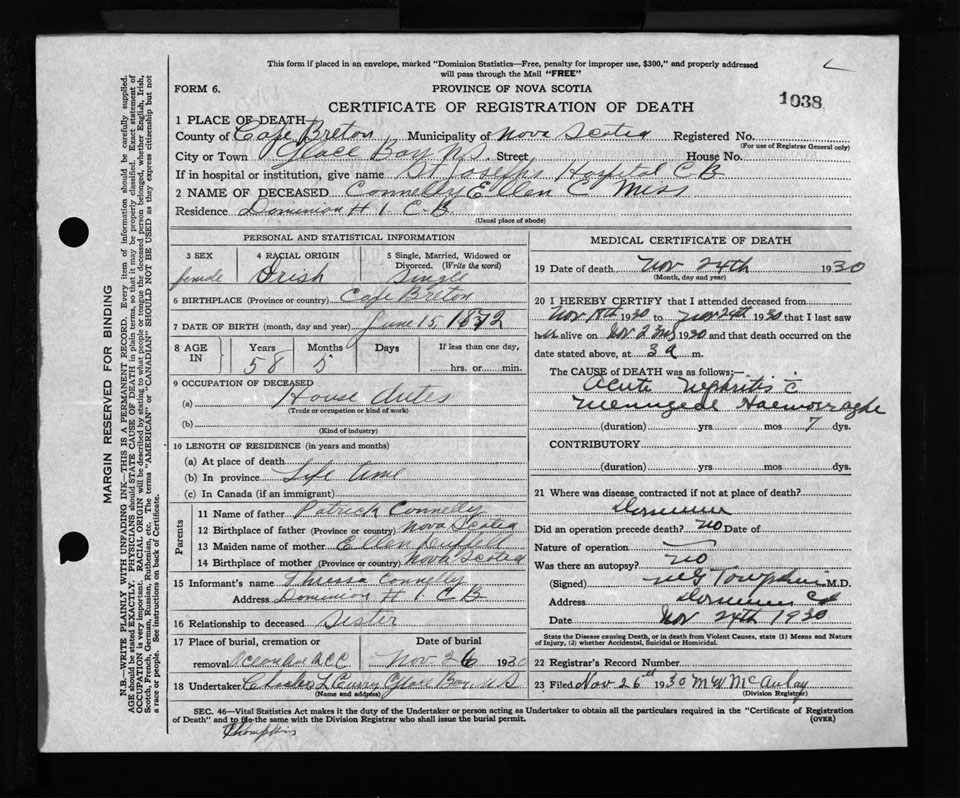 This form if placed in an envelope, marked "Dominion Statistics—Free, penalty for improper use, $300," and properly addressed
will pass through the Mail "FREE"
FORM 6.
PROVINCE OF NOVA SCOTIA
1038
CERTIFICATE OF REGISTRATION OF DEATH
1 PLACE OF DEATH
County of Cape Breton Municipality of Nova Scotia Registered No.
(For use of Registrar General only)
City or Town Glace Bay N.S. Street House No.
If in hospital or institution, give name St Josephs Hospital C B
2 NAME OF DECEASED Connelly Ellen C Miss
Residence Dominion # 1. C.B.
(Usual place of abode)
PERSONAL AND STATISTICAL INFORMATION
3 SEX female
4 RACIAL ORIGIN Irish
5 Single, Married, Widowed or Divorced. (Write the word) Single
6 BIRTHPLACE (Province or country) Cape Breton
7 DATE OF BIRTH (month, day and year) June 15 1872
8 AGE IN Years 58 Months 5 Days If less than one day, hrs. or min.
9 OCCUPATION OF DECEASED
(a) House duties
(Trade or occupation or kind of work)
(b)
(Kind of industry)
10 LENGTH OF RESIDENCE (in years and months)
(a) At place of death
(b) In province Life time
(c) In Canada (if an immigrant)
Parents
11 Name of father Patrick Connelly
12 Birthplace of father (Province or country) Nova Scotia
13 Maiden name of mother Ellen
14 Birthplace of mother (Province or country) Nova Scotia
15 Informant's name Thressa Connelly
Address Dominion # 1 C B
16 Relationship to deceased Sister
17 Place of burial, cremation or removal Ocean Ave
Date of burial Nov 26 1930
18 Undertaker Charles L Curry Glace Bay N S
(Name and address)
MEDICAL CERTIFICATE OF DEATH
19 Date of death Nov 24th 1930
(Month, day and year)
20 I HEREBY CERTIFY that I attended deceased from
Nov 18th 1930 to Nov 24th 1930 that I last saw
her alive on Nov 23rd 1930 and that death occurred on the
date stated above, at 3 a m.
The CAUSE of DEATH was as follows;—
Acute Nephritis c
Meningeal Haemorraghe
(duration) yrs. mos 7 dys.
CONTRIBUTORY
(duration) yrs. mos. dys.
21 Where was disease contracted if not at place of death?
Dominion
Did an operation precede death? no Date of
Nature of operation
Was there an autopsy? no
(Signed) M.D.
Address Dominion C B
Date Nov 24th 1930
State the Disease causing Death, or in death from Violent Causes, state (1) Means and Nature
of Injury, (2) whether Accidental, Suicidal or Homicidal.
22 Registrar's Record Number
23 Filed Nov 26th 1930 M W McAulay
(Division Registrar)
SEC. 46—Vital Statistics Act makes it the duty of the Undertaker or person acting as Undertaker to obtain all the particulars required in the "Certificate of Registration
of Death" and to file the same with the Division Registrar who shall issue the burial permit.
(OVER)
Thompkins
MARGIN RESERVED FOR BINDING
N.B.—WRITE PLAINLY WITH UNFADING INK—THIS IS A PERMANENT RECORD. Every item of information should be carefully supplied.
AGE should be stated EXACTLY. PHYSICIANS should STATE CAUSE OF DEATH in plain terms, so that it may be properly classified. Exact statement of
OCCUPATION is very important. RACIAL ORIGIN will be described by stating to what people or tongue the deceased person belonged, whether English, Irish,
Scotch, French, German, Russian, Ruthenian, etc. The terms "AMERICAN" or "CANADIAN" SHOULD NOT BE USED as they express citizenship but not
a race or people. See instructions on back of Certificate.